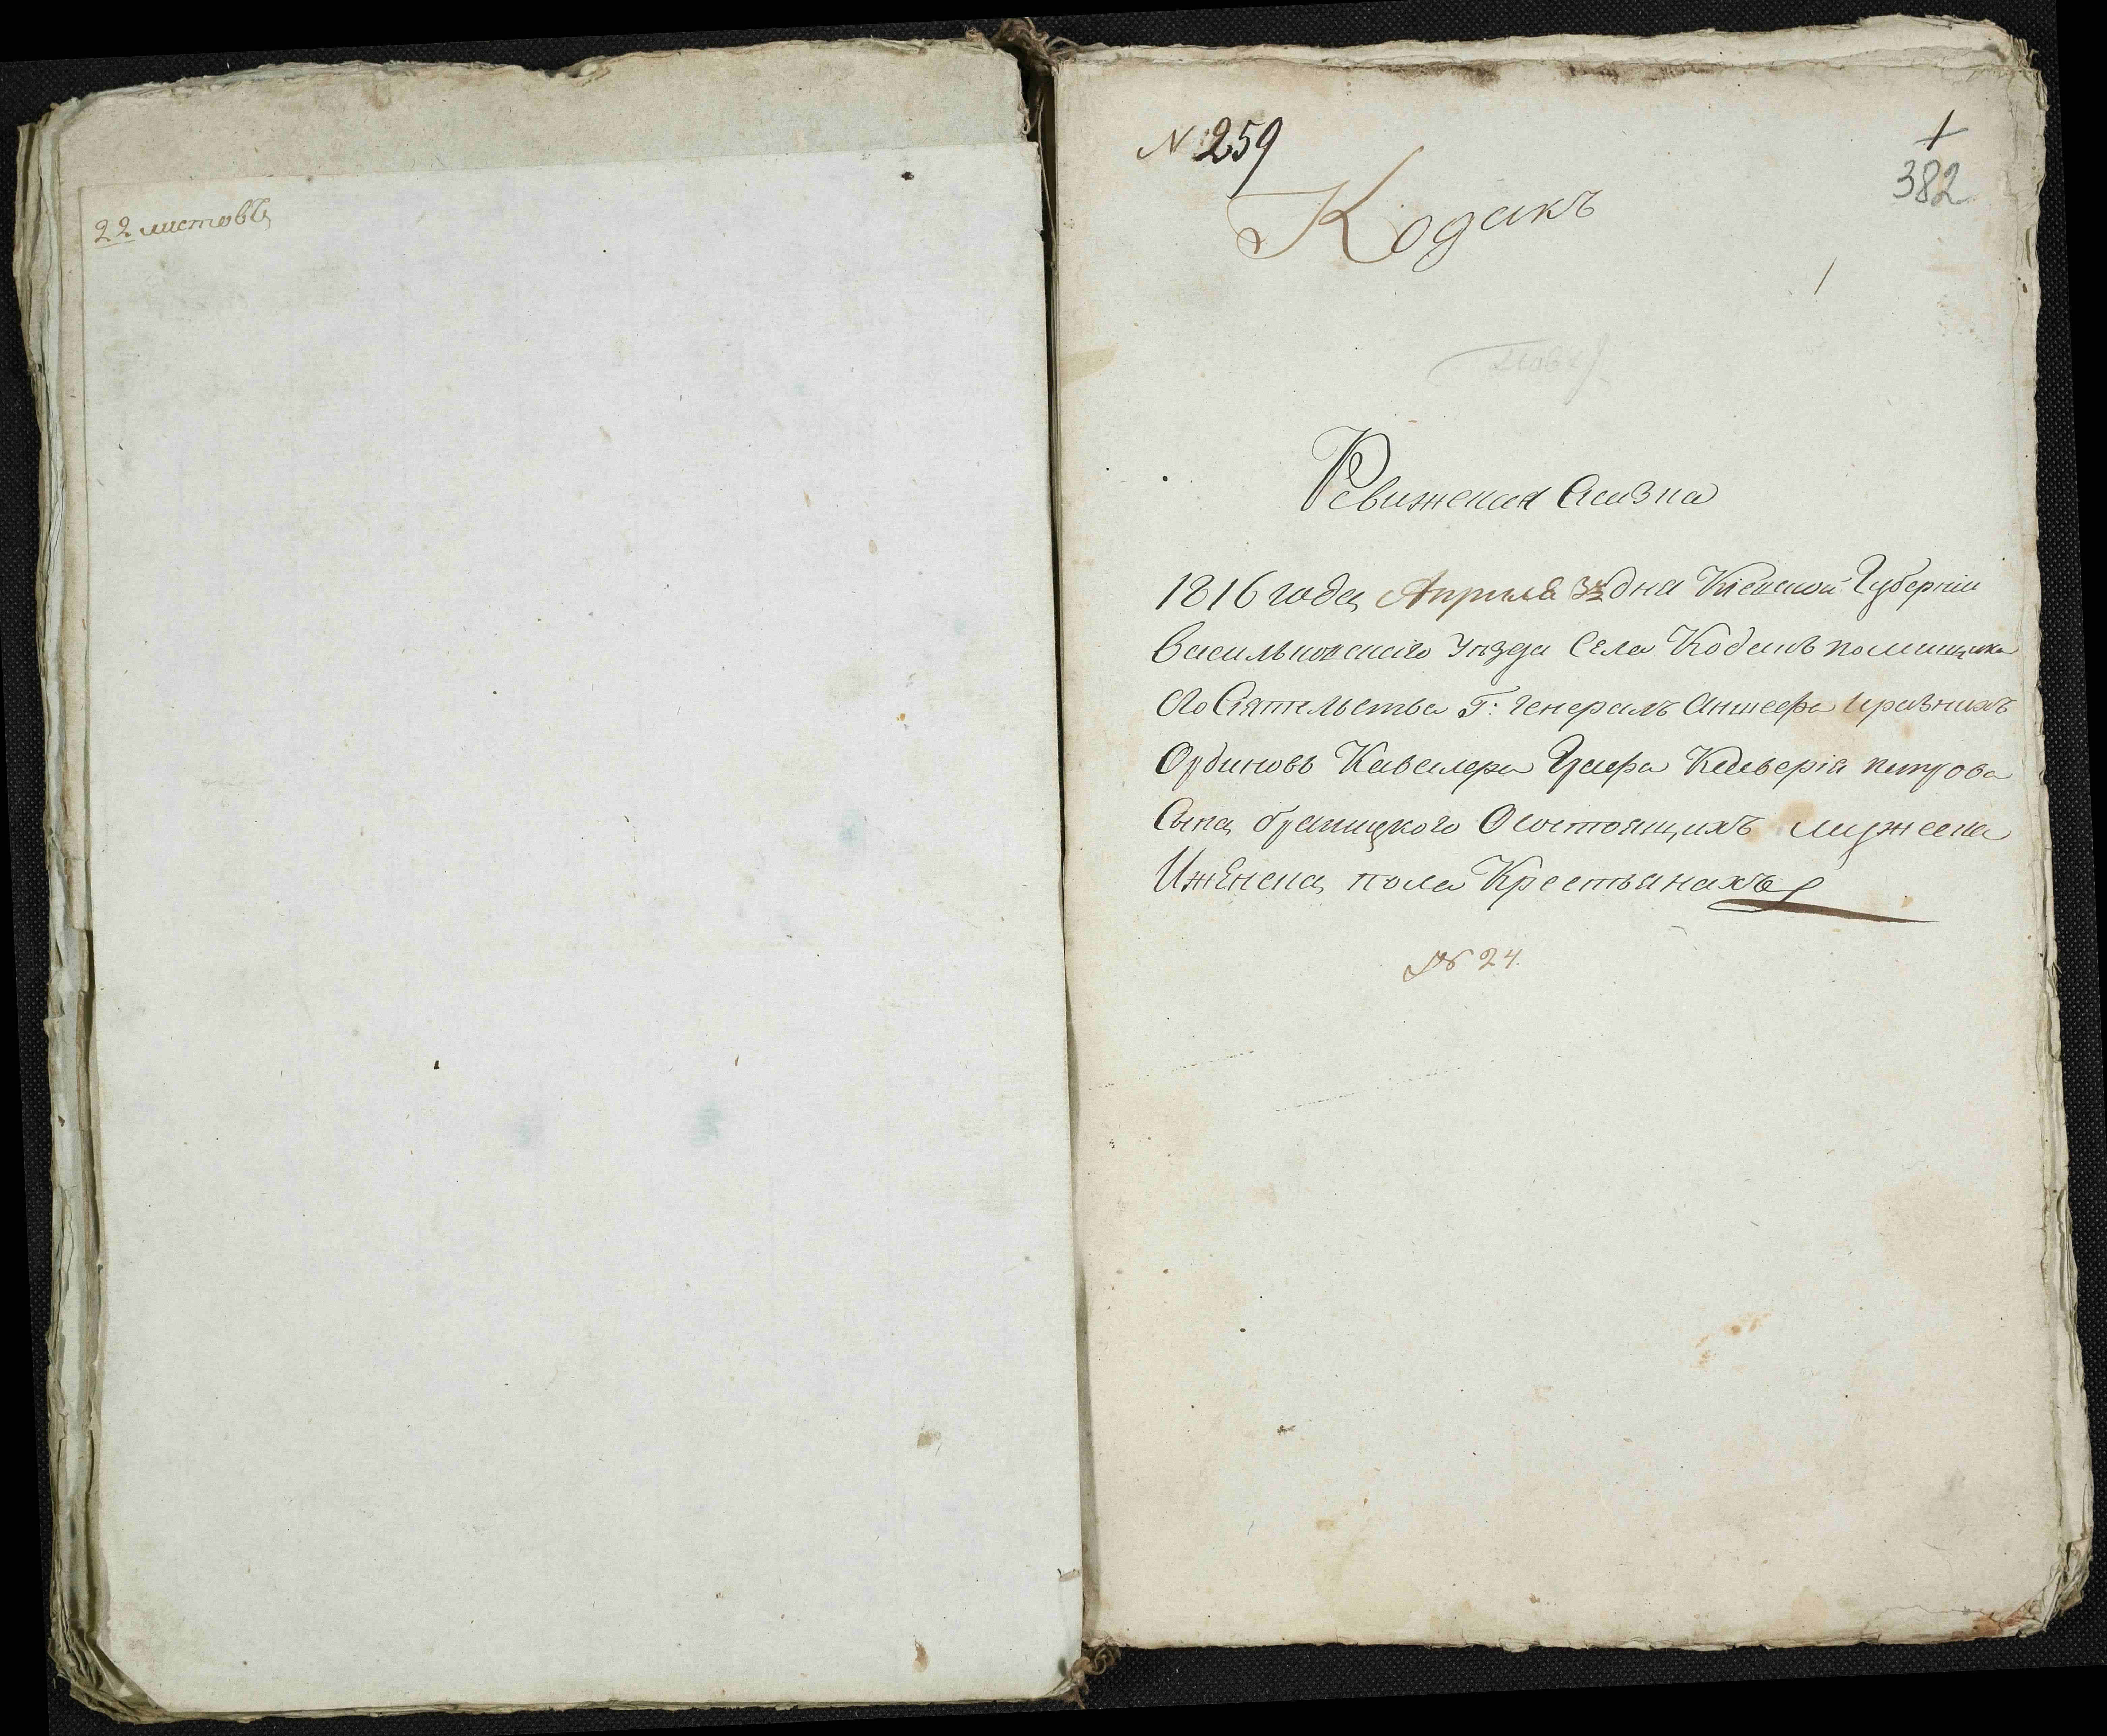 22 листовъ
N 259
1
382
Кодакъ
Ревижская Сказка
1816 года Апреля дня Кіевской Губерніи
Васильковскаго Уезда Села Кодакъ помещика
Его Сіятельства Г: Генералъ Аншефа иразныхъ
Ординовъ Кавалера Графа Ксаверія петрова
Сына браницкого Осостоящихъ мужеска
Иженска пола Крестьянахъ
№ 24.